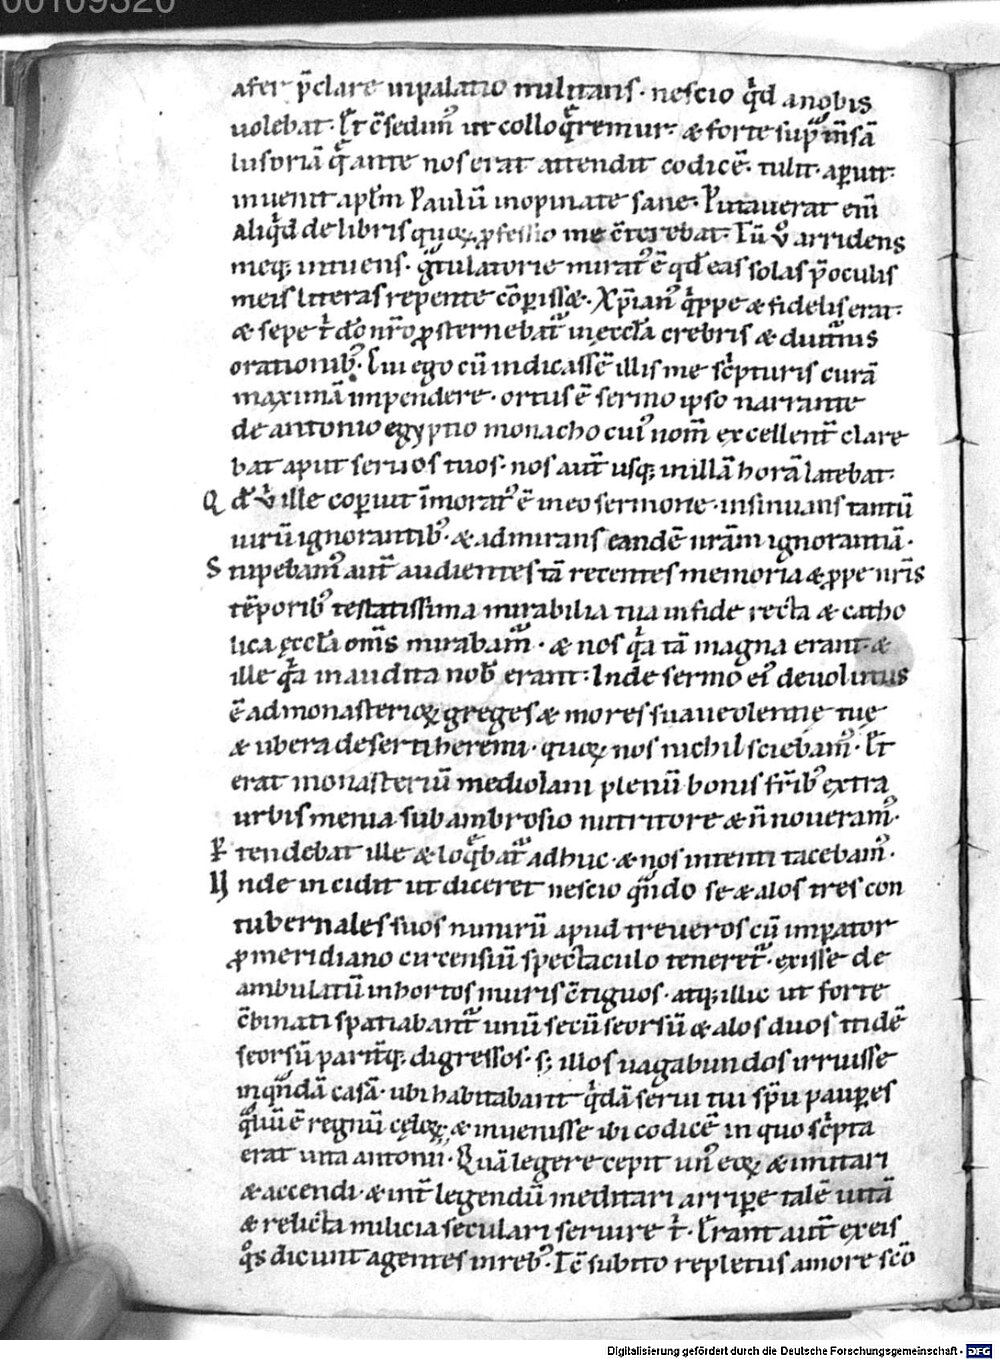 00109320
afer p̄clare inpalatio militans· nescio qͥd anobis
uolebat· Et c̄sedimꝰ ut colloqͤremur· & forte supͣ m̄sā
lusoriā qͣ ante nos erat attendit codicē· tulit· aꝑuit·
inuenit apl̄m Paulū inopinate sane· Putauerat eni̅
Aliqͥd delibris quoꝝ ꝓfessio me c̄terebat· Tū ͮo arridens
meqꝫ intuens· gͣtulatorie miratꝰ ē qđ eas solas p̄oculis
meis literas repente cōꝑissꝫ· Xp̄ianꝰ qͥppe & fidelis erat·
& sepe tͥ dō nr̄o ꝓsternebatͣ in eccl̄a crebris & diutinis
orationibꝰ· Cui ego cū indicassē illis me scͥpturis curā
maximā impendere· ortus ē sermo ipso narrante
de antonio egyptio monacho cuiꝰ nom̄ excellent̄ clare
bat aput seruos tuos· nos aut̄ usqꝫ in illā horā latebat·
Qđ uͥ ille coꝑuit īmoratꝰ ē in eo sermone· insinuans tantū
uirū ignorantibꝰ· & admirans eandē nrām ignorantiā·
Stupebamꝰ aut̄ audientes tā recentes memoria & ꝓpe nr̄is
tēporibꝰ testatissima mirabilia tua infide recta & catho
lica ęccl̄a· om̄s mirabamͣ· & nos qͥa tā magna erant· &
ille qͥa inaudita nob̄ erant· Inde sermo eiꝰ deuolutus
ē ad monasterioꝝ greges & mores suaueolentię tuę
& ubera deserti heremi· quoꝝ nos nichil sciebamꝰ· Et
erat monasteriū mediolani plenū bonis fr̄ibꝰ extra
urbis menia sub ambrosio nutritore & n̄ noueramꝰ·
Ptendebat ille & loqͤbatͣ adhuc· & nos intenti tacebamꝰ·
Unde incidit ut diceret nescio qͣndo se & alos tres con
tubernales suos nimirū apud treueros cū imꝑator
ꝓmeridiano circensiū spectaculo teneretͣ· exisse de
ambulatū inhortos muris c̄tiguos· atqꝫ illic ut forte
c̄binati spatiabantͣ unū secū seorsū & alos duos itidē
seorsū parit̄qꝫ digressos· sꝫ illos uagabundos irruisse
in qͣndā casā· ubi habitabant qͥdā serui tui sp̄u pauꝑes
qͣliū ē regnū cęloꝝ & inuenisse ibi codicē in quo scͥpta
erat uita antonii· Quā legere cepit unꝰ eoꝝ & imitari
& accendi· & int̄ legendū meditari arriꝑe talē uitā
& relicta milicia seculari seruire tͥ· Erant aut̄ ex eis
qͦs dicunt agentes inrebꝰ· Tc̄ subito repletus amore scō
Digitalisierung gefördert durch die Deutsche Forschungsgemeinschaft - DFG